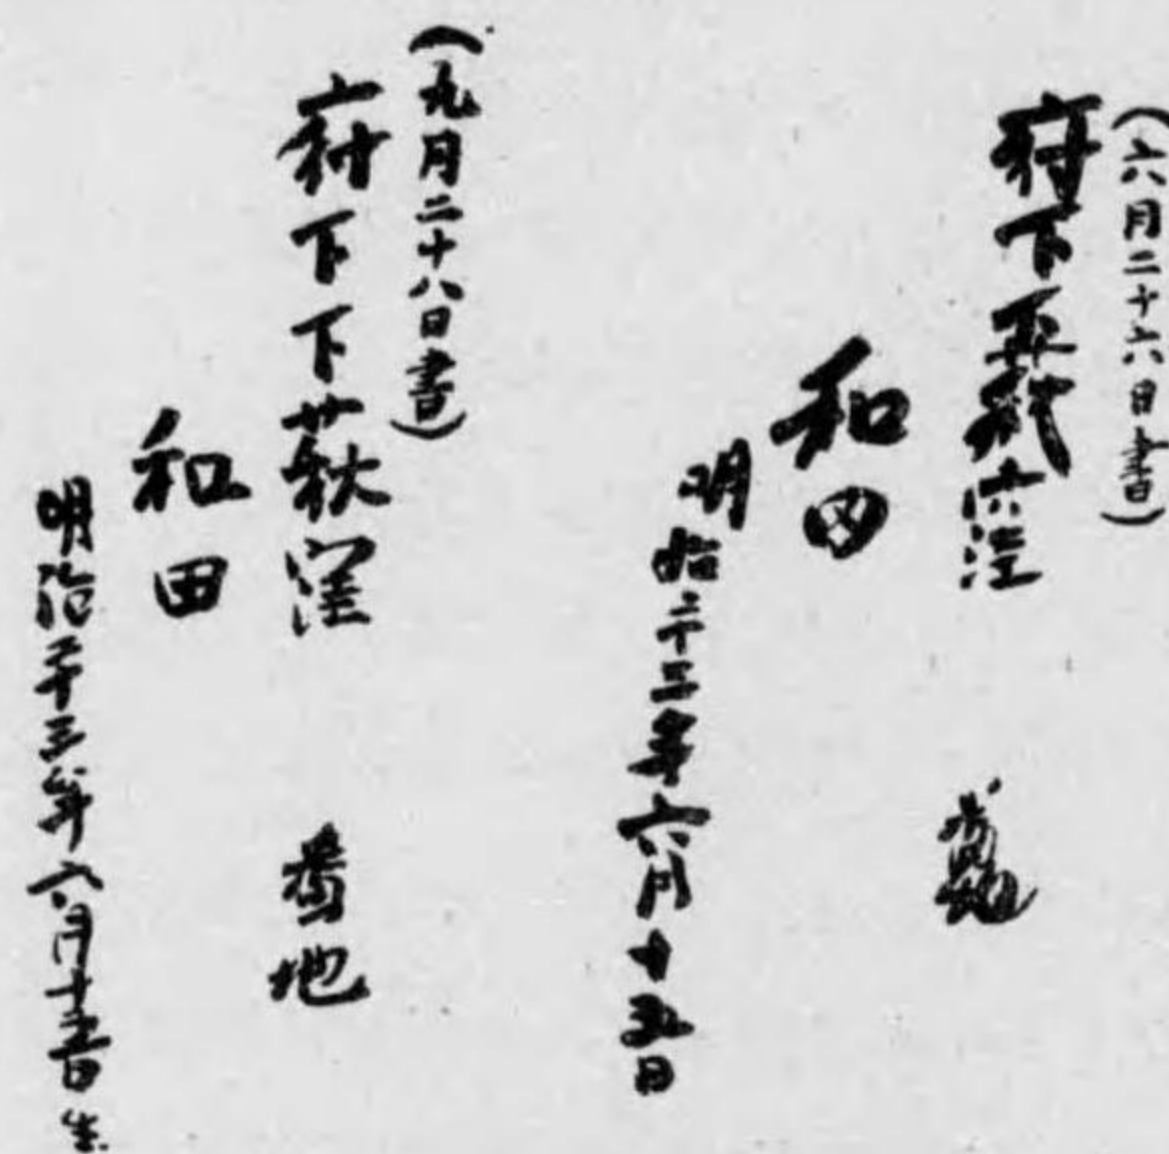 (六月二十六日書)
府下下荻窪
和田
明治二十三年六月十五日
(九月二十八日書)
府下下荻窪 番地
和田
明治二十三年六月十五日生